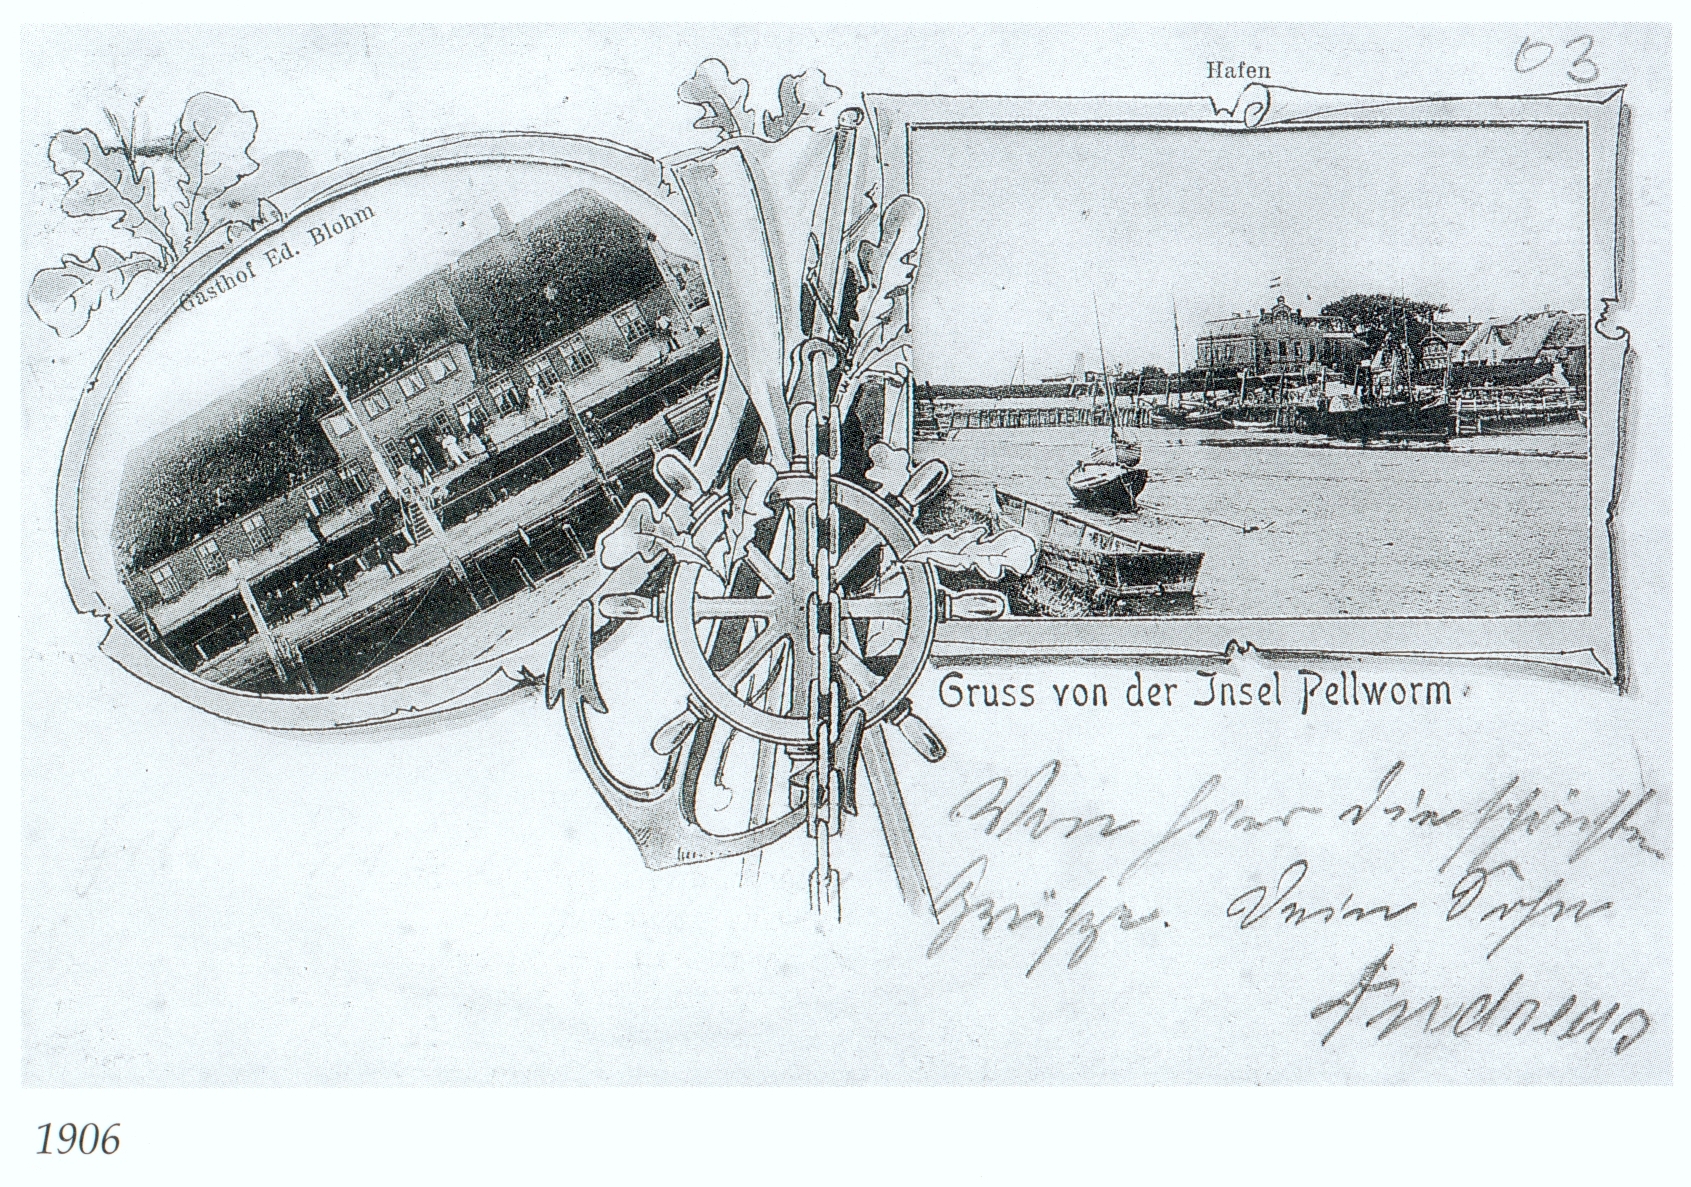 03
Hafen
Gasthof Ed. Blohm
Gruss von der Insel Pellworm
Von hier die schönsten
Grüsze. Dein Sohn
Andreas
1906